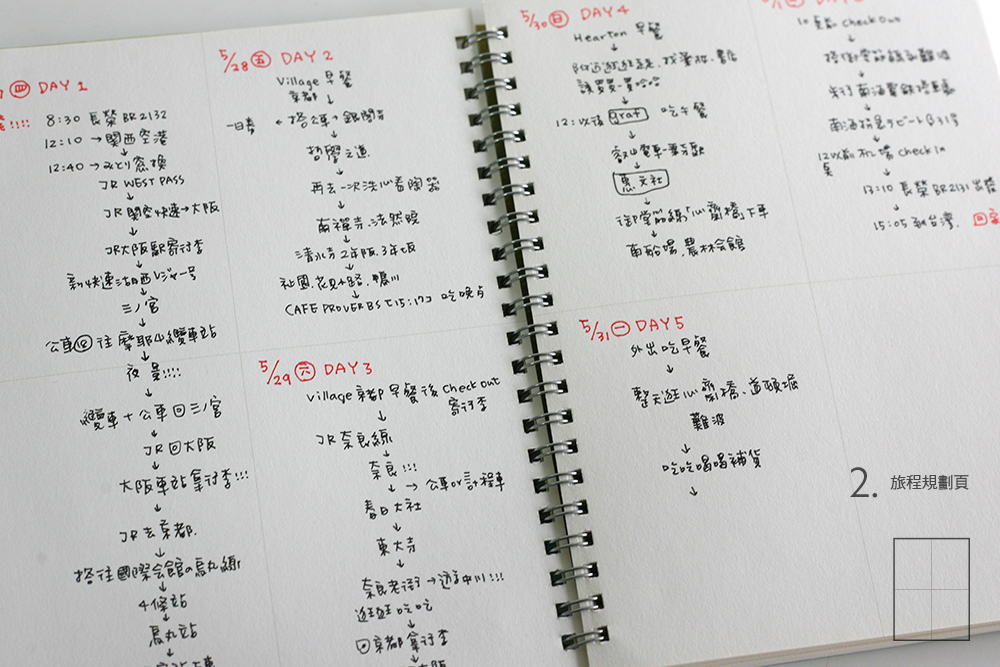 ㊃ DAY 1
8:30 長榮 BR2132
12:10 → 関西空港
12:40 → みどり窓換
JR WEST PASS
JR 関空快速→大阪
↓
JR大阪駅寄行李
↓
三ノ宮
↓
公車⑱往摩耶山纜車站
↓
夜景!!!!
↓
纜車+公車回三ノ宮
↓
JR回大阪
↓
大阪車站拿行李!!!
↓
JR去京都.
↓
搭往國際会館の烏丸線
↓
4條站
↓
烏丸站
↓
5/28 ㊄ DAY 2
Village 早餐
京都 ↓
← 搭公車→銀閣寺
↓
哲學之道
↓
再去一次洗心看陶器
↓
南禪寺.法然院
↓
清水寺 2年阪.3年坂
↓
祗園.花見小路.鴨川
↓
CAFE PROVERBS で15:17コ 吃晚点
5/29 ㊅ DAY 3
Village 京都 早餐後 Check out
寄行李
↓
JR奈良線
↓
奈良!!!
↓ → 公車or計程車
春日大社
↓
東大寺
↓
奈良老街→遊中川!!!
逛逛吃吃
↓
回京都拿行李
↓
大阪
5/30 ㊐ DAY 4
Hearton 早餐
↓
書店
↓
12:以後 graf 吃午餐
↓
叡山電車
↓
惠文社
↓
御堂筋線「心齋橋」下車
↓
南船場.農林会館
5/31 ㊀ DAY 5
外出吃早餐
↓
整天逛心齋橋、道頓堀
難波
↓
吃吃喝喝補貨
↓
Check Out
↓
搭御堂筋線到難波
↓
↓
南海特急ラピートβ31号
↓
12以前 机場 check in
↓
13:10 長榮 BR2131 出發
↓
15:05 到台灣.
2. 旅程規劃頁